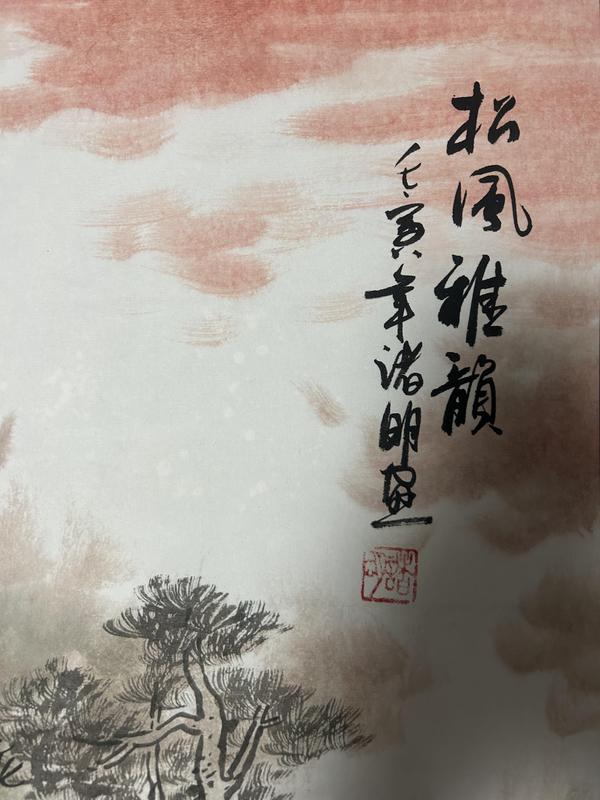 松風雅韻
壬寅年诸明画